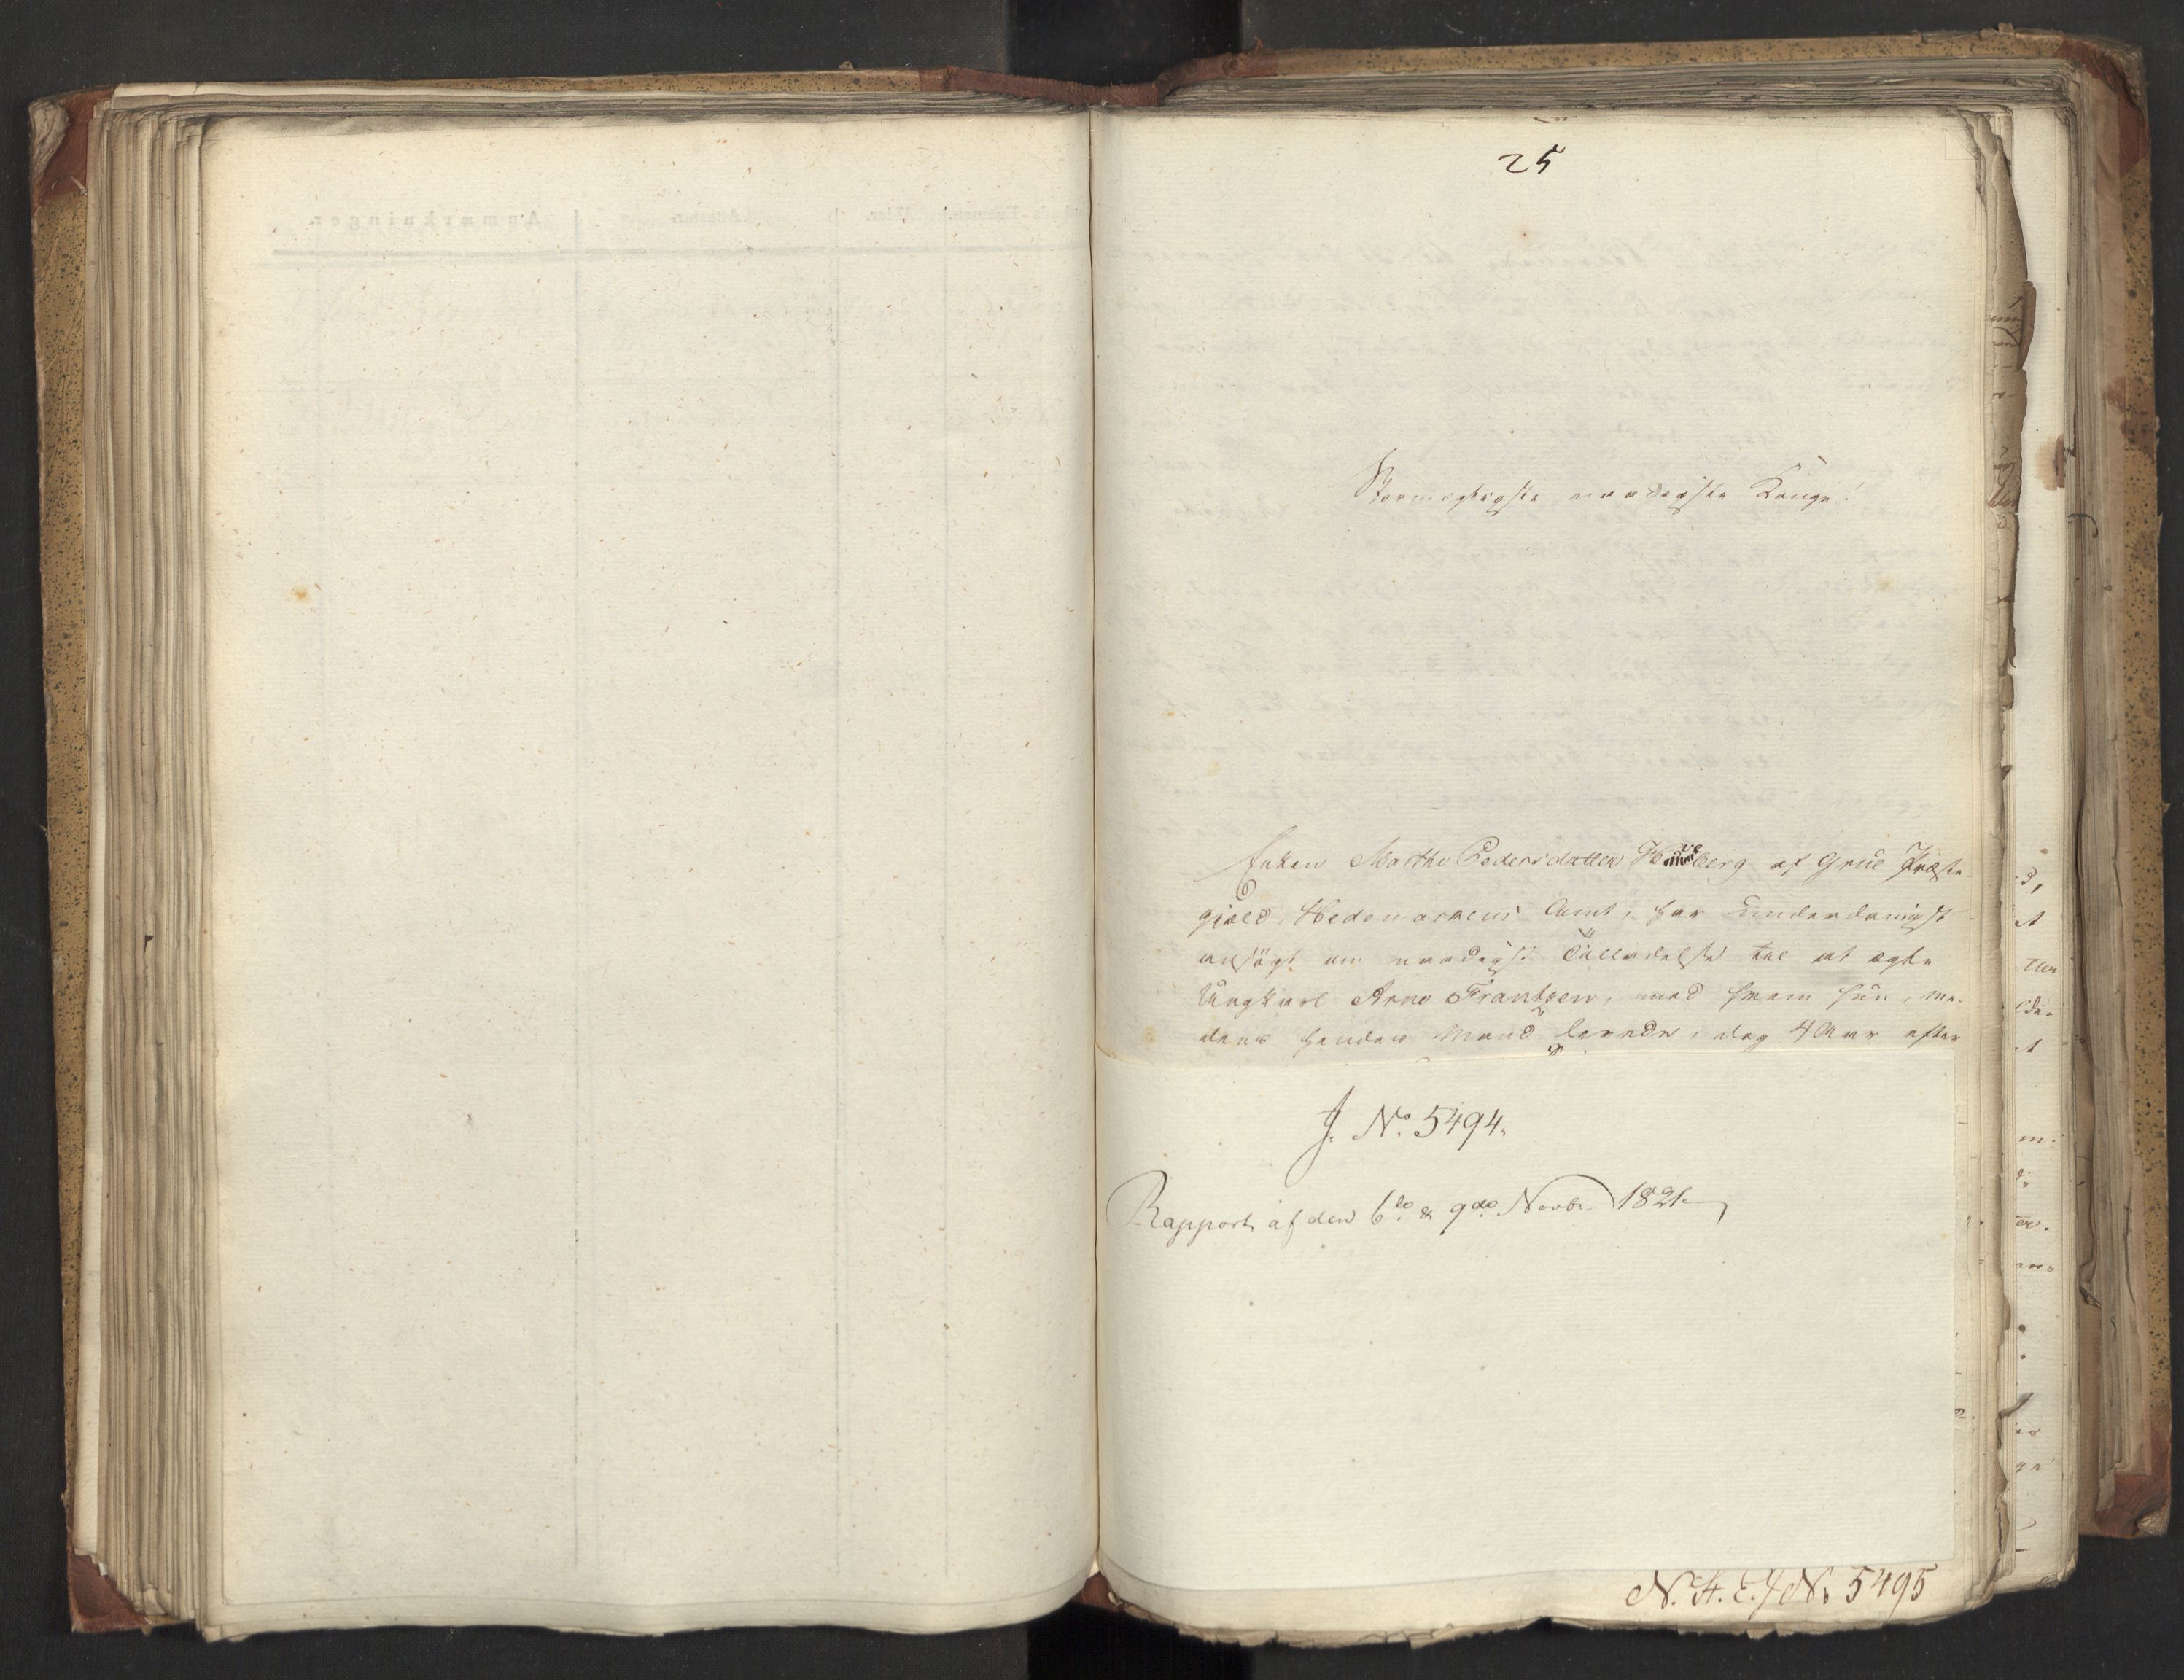 25
Stormægtigste naadigste Konge!
Enken Marthe Pedersdatter af Grue Præste-
gjæld, Hedemarkens Amt, har underdanigst
ansögt om naadigst Tilladelse til at ægte
Ungkarl Arne Frantzen, med hvem hun, me-
dens hendes Mand levede, dog 4 Aar efter
J. No. 5494.
Rapport af den 6te & 9de Novbr 1821
N. H. E. J No 5495